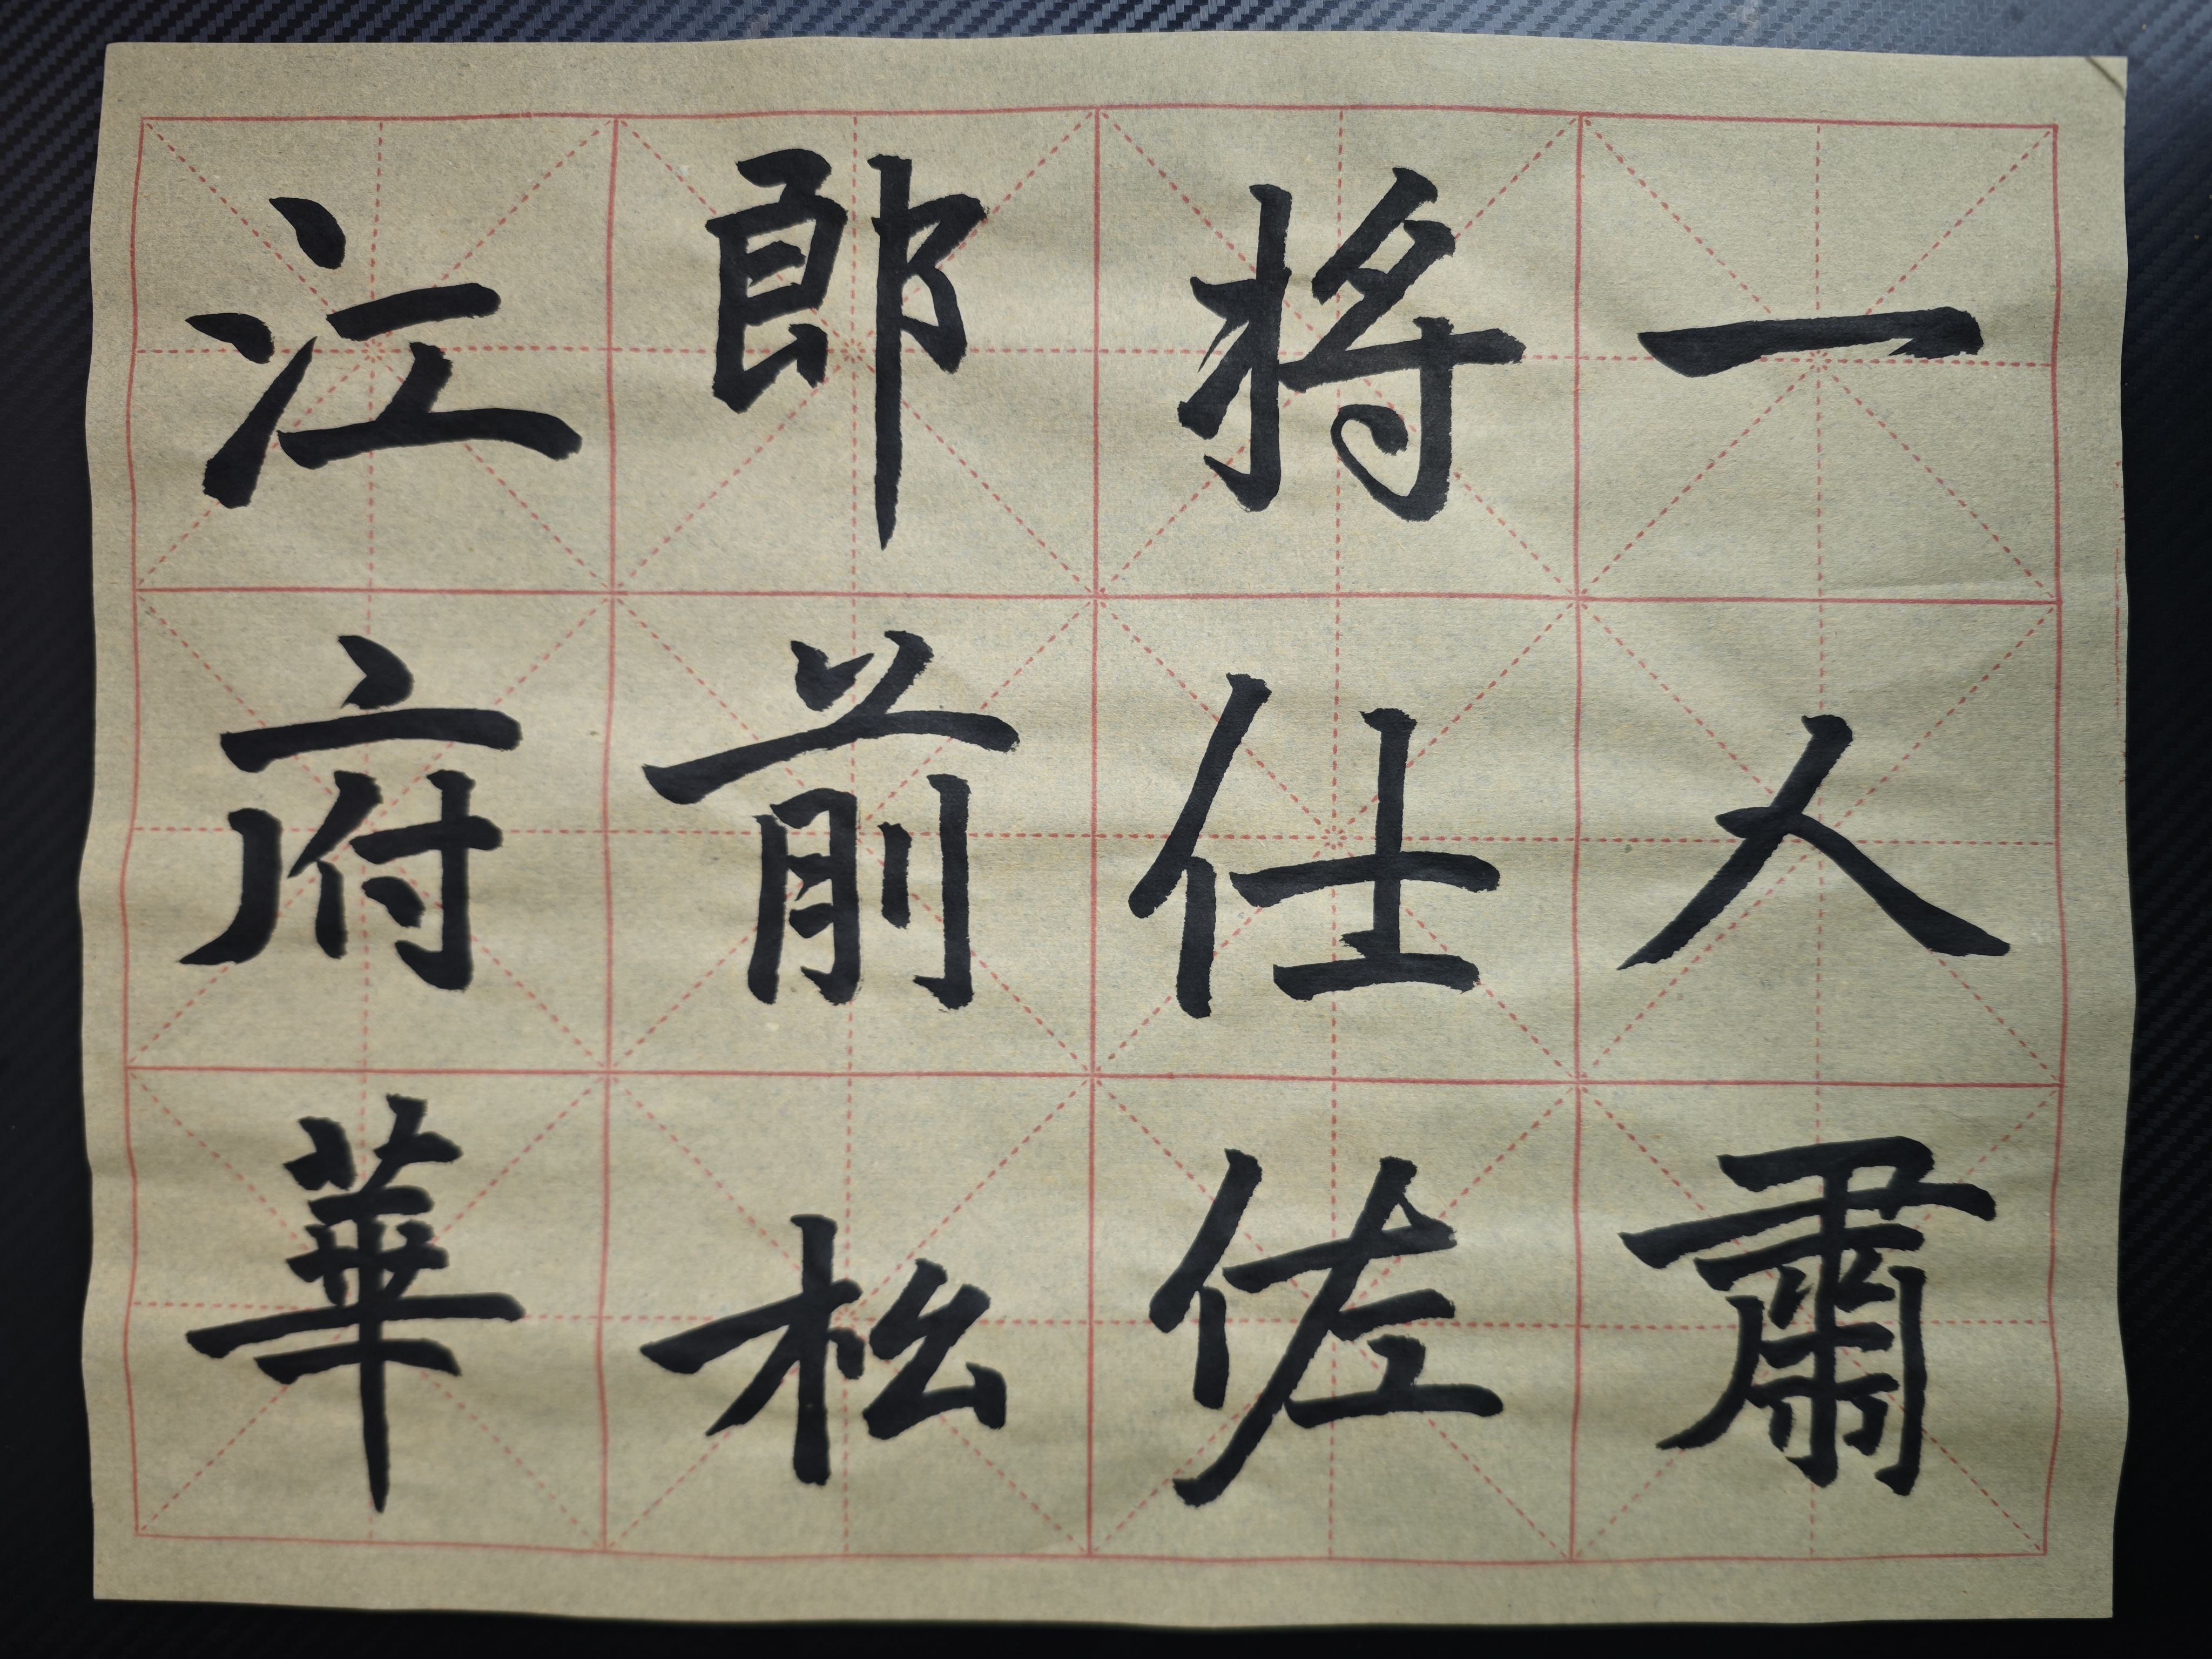 一人肅
将仕佐
郎前松
江府華